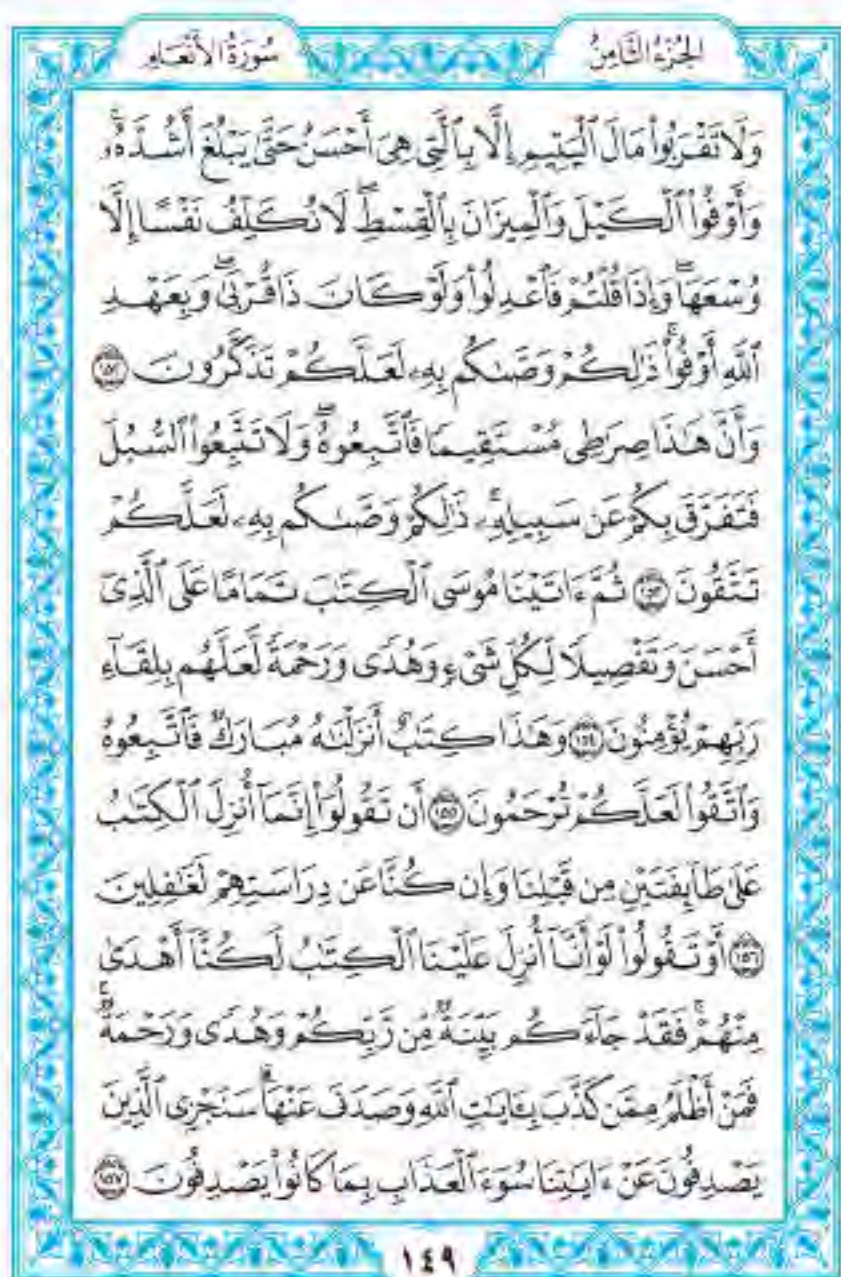 الجُزْءُ الثَّامِنُ
سُورَةُ الأَنْعَامِ
وَلَا تَقْرَبُوا۟ مَالَ ٱلْيَتِيمِ إِلَّا بِٱلَّتِى هِىَ أَحْسَنُ حَتَّىٰ يَبْلُغَ أَشُدَّهُۥۖ
وَأَوْفُوا۟ ٱلْكَيْلَ وَٱلْمِيزَانَ بِٱلْقِسْطِۖ لَا نُكَلِّفُ نَفْسًا إِلَّا
وُسْعَهَاۖ وَإِذَا قُلْتُمْ فَٱعْدِلُوا۟ وَلَوْ كَانَ ذَا قُرْبَىٰۖ وَبِعَهْدِ
ٱللَّهِ أَوْفُوا۟ۚ ذَٰلِكُمْ وَصَّىٰكُم بِهِۦ لَعَلَّكُمْ تَذَكَّرُونَ ١٥٢
وَأَنَّ هَٰذَا صِرَٰطِى مُسْتَقِيمًا فَٱتَّبِعُوهُۖ وَلَا تَتَّبِعُوا۟ ٱلسُّبُلَ
فَتَفَرَّقَ بِكُمْ عَن سَبِيلِهِۦۚ ذَٰلِكُمْ وَصَّىٰكُم بِهِۦ لَعَلَّكُمْ
تَتَّقُونَ ١٥٣ ثُمَّ ءَاتَيْنَا مُوسَى ٱلْكِتَٰبَ تَمَامًا عَلَى ٱلَّذِىٓ
أَحْسَنَ وَتَفْصِيلًا لِّكُلِّ شَىْءٍ وَهُدًى وَرَحْمَةً لَّعَلَّهُم بِلِقَآءِ
رَبِّهِمْ يُؤْمِنُونَ ١٥٤ وَهَٰذَا كِتَٰبٌ أَنزَلْنَٰهُ مُبَارَكٌ فَٱتَّبِعُوهُ
وَٱتَّقُوا۟ لَعَلَّكُمْ تُرْحَمُونَ ١٥٥ أَن تَقُولُوٓا۟ إِنَّمَآ أُنزِلَ ٱلْكِتَٰبُ
عَلَىٰ طَآئِفَتَيْنِ مِن قَبْلِنَا وَإِن كُنَّا عَن دِرَاسَتِهِمْ لَغَٰفِلِينَ
١٥٦ أَوْ تَقُولُوا۟ لَوْ أَنَّآ أُنزِلَ عَلَيْنَا ٱلْكِتَٰبُ لَكُنَّآ أَهْدَىٰ
مِنْهُمْۚ فَقَدْ جَآءَكُم بَيِّنَةٌ مِّن رَّبِّكُمْ وَهُدًى وَرَحْمَةٌۚ
فَمَنْ أَظْلَمُ مِمَّن كَذَّبَ بِـَٔايَٰتِ ٱللَّهِ وَصَدَفَ عَنْهَاۗ سَنَجْزِى ٱلَّذِينَ
يَصْدِفُونَ عَنْ ءَايَٰتِنَا سُوٓءَ ٱلْعَذَابِ بِمَا كَانُوا۟ يَصْدِفُونَ ١٥٧
١٤٩